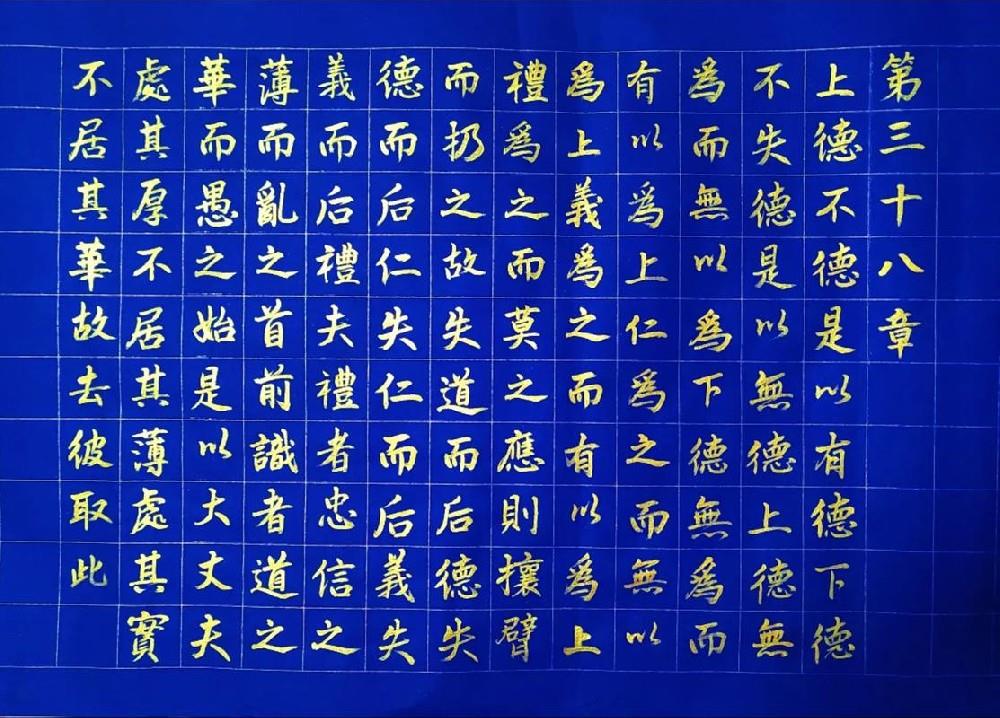 第三十八章
上德不德是以有德下德
不失德是以無德上德無
為而無以為下德無為而
有以為上仁為之而無以
為上義為之而有以為上
禮為之而莫之應則攘臂
而扔之故失道而后德失
德而后仁失仁而后義失
義而后禮夫禮者忠信之
薄而亂之首前識者道之
華而愚之始是以大丈夫
處其厚不居其薄處其實
不居其華故去彼取此